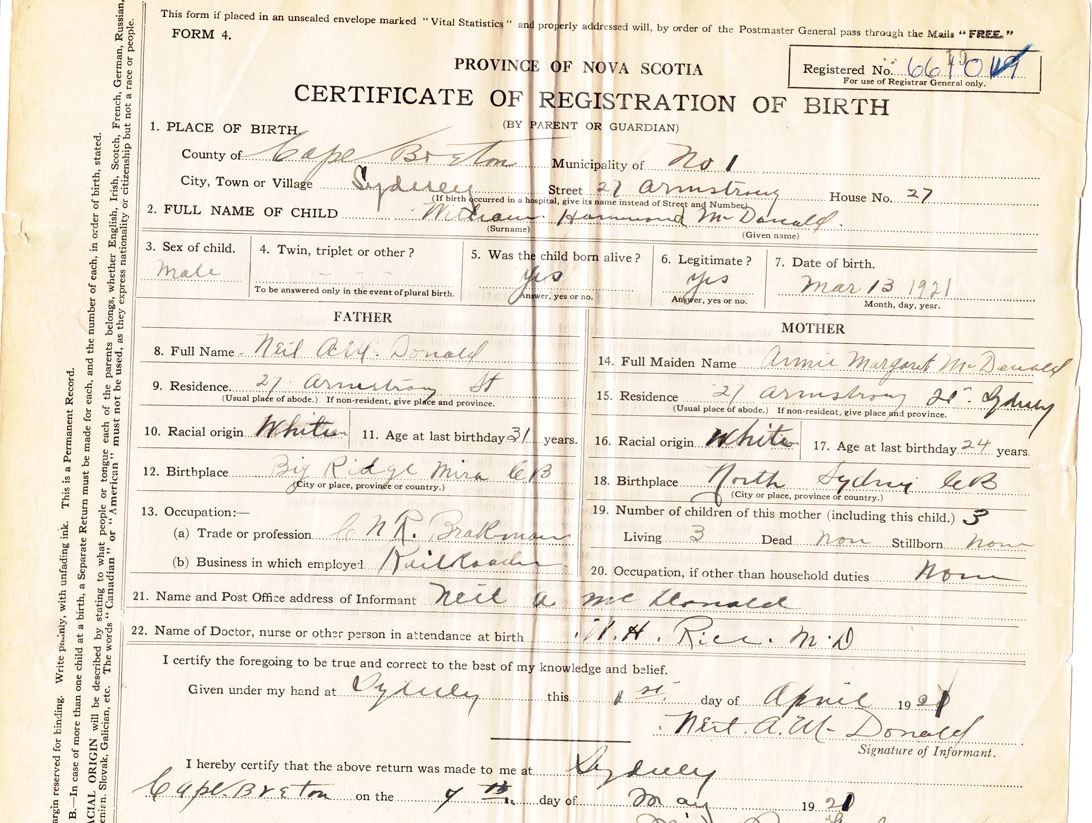 This form if placed in an unsealed envelope marked "Vital Statistics" and properly addressed will, by order of the Postmaster General pass through the Mails "FREE."
FORM 4.
PROVINCE OF NOVA SCOTIA
Registered No.
For use of Registrar General only.
CERTIFICATE OF REGISTRATION OF BIRTH
(BY PARENT OR GUARDIAN)
1. PLACE OF BIRTH.
County of Cape Breton Municipality of No 1
City, Town or Village Sydney Street 27 Armstrong House No. 27
(If birth occurred in a hospital, give its name instead of Street and Number)
2. FULL NAME OF CHILD Hammond McDonald
(Surname) (Given name)
3. Sex of child. Male
4. Twin, triplet or other?
To be answered only in the event of plural birth.
5. Was the child born alive? yes
Answer, yes or no.
6. Legitimate? yes
Answer, yes or no.
7. Date of birth. Mar 13 1921
Month, day, year.
FATHER
8. Full Name Neil A Mc Donald
9. Residence. 27 Armstrong St
(Usual place of abode.) If non-resident, give place and province.
10. Racial origin White 11. Age at last birthday 31 years.
12. Birthplace Big Ridge Mira C B
(City or place, province or country.)
13. Occupation:—
(a) Trade or profession C N R. Brakman
(b) Business in which employed Railroader
MOTHER
14. Full Maiden Name Annie Margaret McDonald
15. Residence 27 Armstrong St. Sydney
(Usual place of abode.) If non-resident, give place and province.
16. Racial origin White 17. Age at last birthday 24 years.
18. Birthplace North Sydney C B
(City or place, province or country.)
19. Number of children of this mother (including this child.) 3
Living 3 Dead non Stillborn non
20. Occupation, if other than household duties Non
21. Name and Post Office address of Informant Neil A McDonald
22. Name of Doctor, nurse or other person in attendance at birth H. Rice. M.D
I certify the foregoing to be true and correct to the best of my knowledge and belief.
Given under my hand at Sydney this 1st day of April 1921
Neil. A. Mc Donald
Signature of Informant.
I hereby certify that the above return was made to me at Sydney
Cape Breton on the 7th. day of May 1921
argin reserved for binding. Write plainly, with unfading ink. This is a Permanent Record.
B.—In case of more than one child at a birth, a Separate Return must be made for each, and the number of each, in order of birth, stated.
ACIAL ORIGIN will be described by stating to what people or tongue each of the parents belongs, whether English, Irish, Scotch, French, German, Russian,
enian, Slovak, Galician, etc. The words "Canadian" or "American" must not be used, as they express nationality or citizenship but not a race or people.